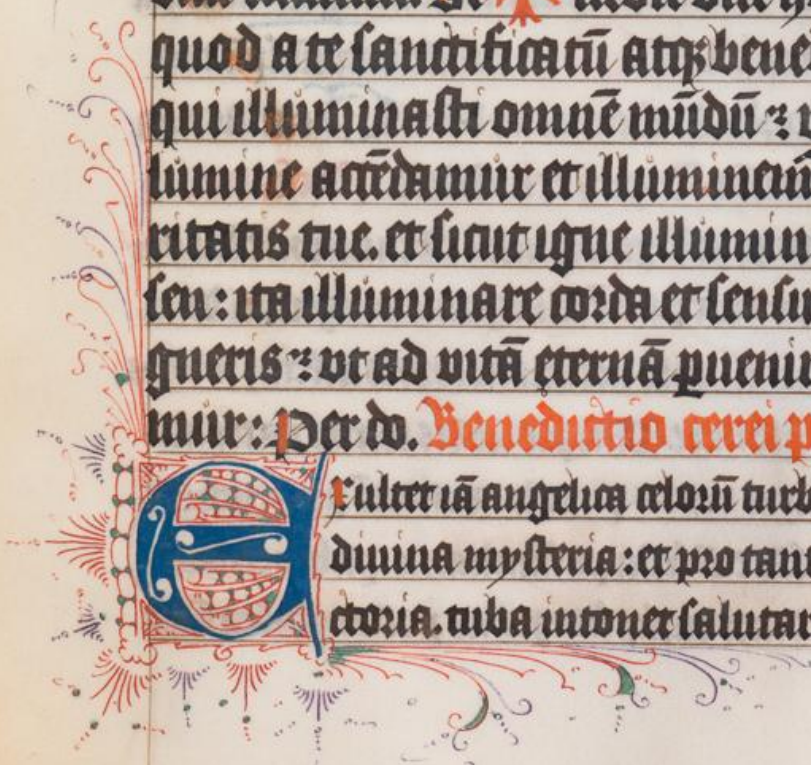 quod a te sanctificatū atqꝫ bene
qui illuminasti omnē mūdū ⁊
lumine accēdamur et illuminem̄
ritatis tue. et sicut igne illumin
sen : ita illuminare corda et sensu
gueris ⁊ vt ad vitā eternā ꝑueni
mur : Per do. Benedictio cerei p
Exultet iā angelica celoꝝ turb
diuina mysteria : et pro tan
ctoria. tuba intonet salutar